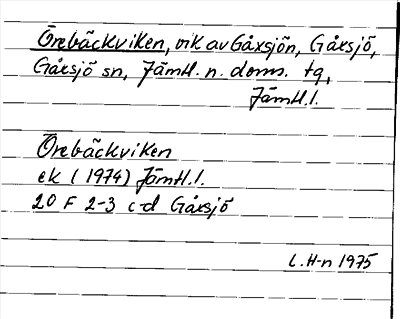 Örebäckviken, vik av Gåxsjön, Gåxsjö,
Gåxsjö sn, Jämtl. n. doms. tg,
Jämtl.l.
Örebäckviken
ek (1974) Jämtl.l.
20 F 2-3 c-d Gåxsjö
L. H-n 1975